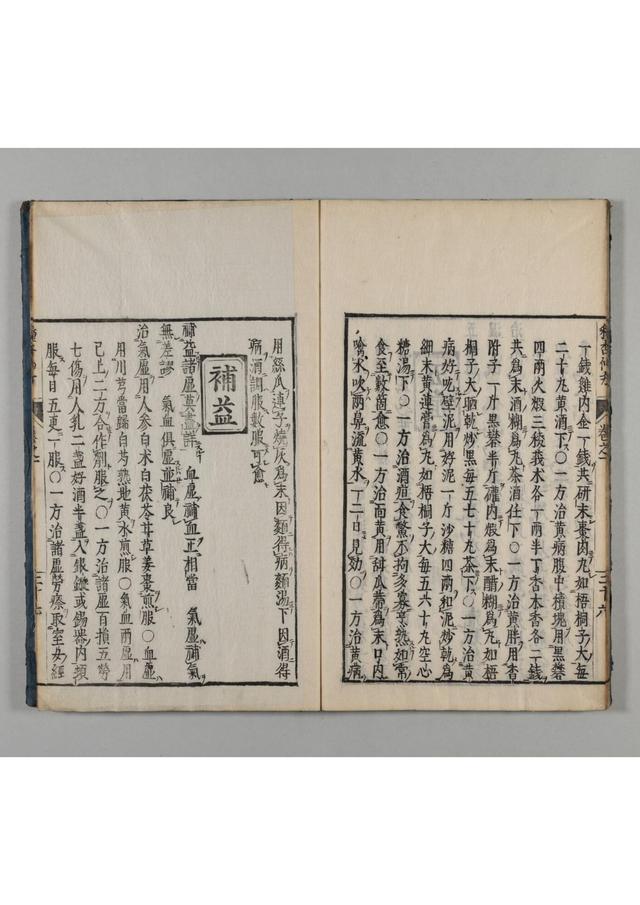 一錢雞内金一錢共研末棗肉丸如梧桐子大每
二十九黄酒下〇一方治黄病腹中積塊用黒礬
四兩火煅三稜莪朮各一兩半丁香木香各二錢
共爲末酒糊爲丸茶酒任下〇一方治黄胖用香
附子一斤黒礬半斤礶内煅爲末醋糊爲丸如梧
桐子大晒乾炒黒每五七十九茶下〇一方治黄
病好吃壁泥用好泥一斤沙糖四兩和泥炒乾爲
細末黄連膏爲丸如梧桐子大每五六十九空心
糖湯下〇一方治酒疸食鱉不拘多寡烹熟如常
食至數箇愈〇一方治面黄用甜瓜蒂爲末口内
噙水吹兩鼻流黄水一二日見効〇一方治黄病
用絲瓜連子燒灰爲末因麵得病麵湯下因酒得
病酒調服數服可愈
補益
補益諸虚莫盡詳 血虚補血正相當 氣虚補氣
無差謬 氣血俱虚並補良
治氣虚用人參白朮白茯苓甘草姜棗煎服〇血虚
用川芎當歸白芍熟地黄水煎服〇氣血兩虚用
已上二方合作劑服之〇一方治諸虚百損五勞
七傷用人乳二盞好酒半盞入銀鏇或錫器内頓
服每日五更一服〇一方治諸虚勞瘵取室女經